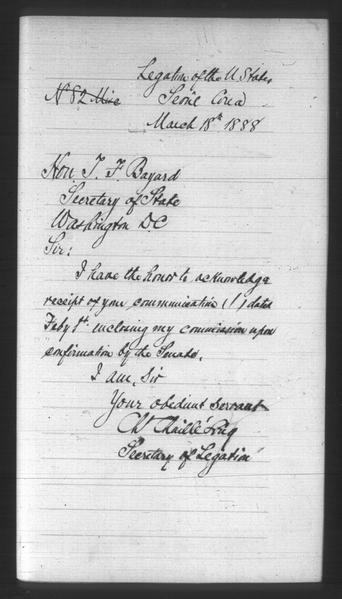 Legation of the U States,
Seoul Corea
No 82 Misc
March 18th 1888
Hon. T. F. Bayard
Secretary of State
Washington DC
Sir:
I have the honor to acknowledge
receipt of your communication (1) dated
Feby 1st. inclosing my commission upon
confirmation by the Senate.
I am, Sir
Your obedient servant
Ch Chaillé Long
Secretary of Legation